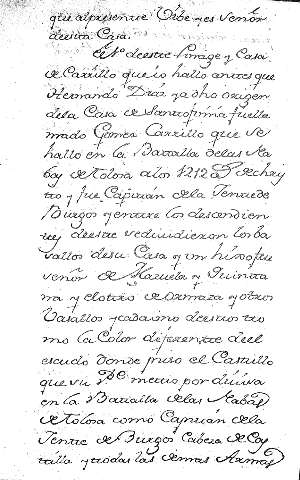 que al presente Vibe y es señor
de esta Casa.
El 1º de este Linage y Casa
de Carrillo que io hallo antes que
Hernando Diaz ya dho origen
de la Casa de Santofimia fue lla
mado Gomez Carrillo que se
hallo en la Batalla de las Na
bas de tolosa año 1212 de chris
tro y fue Capitan de la Jente de
Burgos y entre los descendien
tes de este se dividieron los ba
sallos de su Casa y un hijo fue
señor de Mazuela y Quintana
na y el otro de Barnaza y otros
Vasallos y cada uno de estos to
mo la Color diferente del
escudo donde puso el Castillo
que su Pe metio por divisa
en la Batalla de las Nabas
de tolosa como Capitan de la
Jente de Burgos Cabeza de Cas
tilla y todas las demas Armas